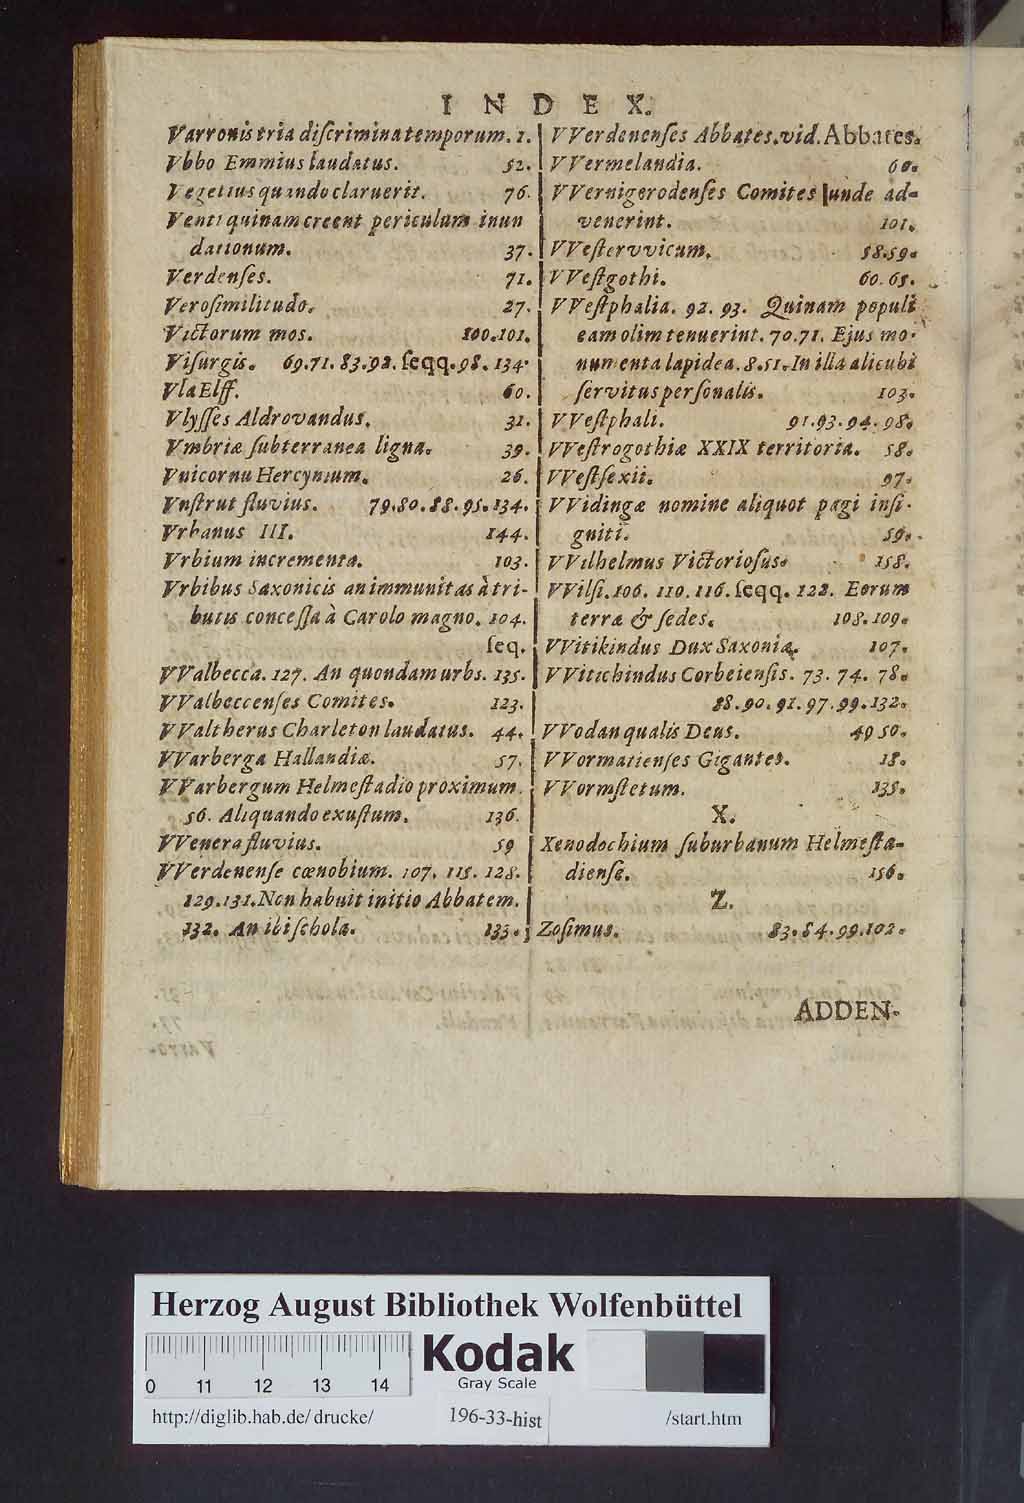 INDEX.
Varronis tria diſcrimina temporum. 1.
Vbbo Emmius laudatus. 52.
Vegetius quando claruerit. 76.
Venti quinam creent periculum inun
dationum. 37.
Verdenſes. 71.
Veroſimilitudo. 27.
Victorum mos. 100.101.
Viſurgis. 69.71.83.92. ſeqq. 98. 134.
Vla Elff. 60.
Vlyſſes Aldrovandus. 31.
Vmbriæ ſubterranea ligna. 39.
Vnicornu Hercynium. 26.
Vnſtrut fluvius. 79.80.88.95.134.
Vrbanus III. 144.
Vrbium incrementa. 103.
Vrbibus Saxonicis an immunitas à tri-
butis conceſſa à Carolo magno. 104.
ſeq.
VValbecca. 127. An quondam urbs. 135.
VValbeccenſes Comites. 123.
VValtherus Charleton laudatus. 44.
VVarberga Hallandiæ. 57.
VVarbergum Helmeſtadio proximum.
56. Aliquando exuſtum. 136.
VVenera fluvius. 59
VVerdenenſe cœnobium. 107. 115. 128.
129.131. Non habuit initio Abbatem.
132. An ibi ſchola. 133.
VVerdenenſes Abbates. vid. Abbates.
VVermelandia. 60.
VVernigerodenſes Comites unde ad-
venerint. 101.
VVeſtervvicum. 58.59.
VVeſtgothi. 60.65.
VVeſtphalia. 92. 93. Quinam populi
eam olim tenuerint. 70.71. Ejus mo-
numenta lapidea. 8.51. In illa alicubi
ſervitus perſonalis. 103.
VVeſtphali. 91.93.94.98.
VVeſtrogothiæ XXIX territoria. 58.
VVeſtſexii. 97.
VVidingæ nomine aliquot pagi inſi-
gniti. 59.
VVilhelmus Victorioſus. 158.
VVilſi. 106. 110. 116. ſeqq. 122. Eorum
terræ & ſedes. 108.109.
VVitikindus Dux Saxoniæ. 107.
VVitichindus Corbeienſis. 73. 74. 78.
88.90.91.97.99.132.
VVodan qualis Deus. 49 50.
VVormatienſes Gigantes. 18.
VVormſtetum. 135.
X.
Xenodochium ſuburbanum Helmeſta-
dienſe. 156.
Z.
Zoſimus. 83.84.99.102.
ADDEN-
Herzog August Bibliothek Wolfenbüttel
Kodak
Gray Scale
0 11 12 13 14
http://diglib.hab.de/drucke/ 196-33-hist /start.htm